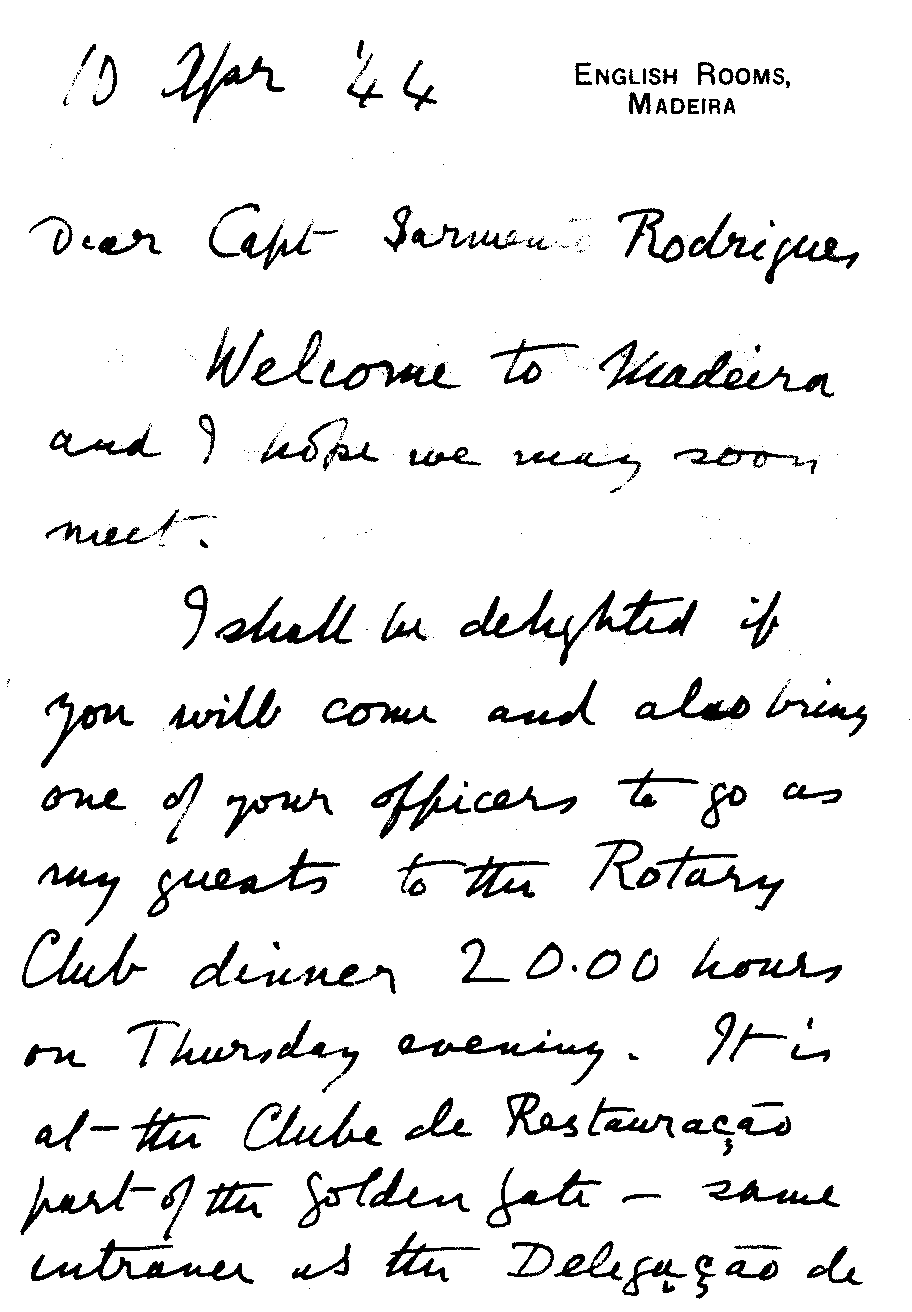 10 Apr '44
ENGLISH ROOMS,
MADEIRA
Dear Capt Sarmento Rodrigues
Welcome to Madeira
and I hope we may soon
meet.
I shall be delighted if
you will come and also bring
one of your officers to go as
my guests to the Rotary
Club dinner 20.00 hours
on Thursday evening. It is
at the Clube de Restauração
part of the Golden Gate – same
entrance as the Delegação de